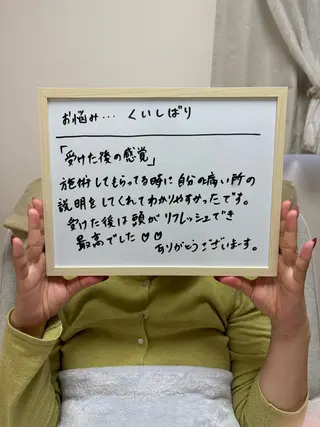 お悩み… くいしばり
「受けた後の感覚」
施術してもらってる時に自分の痛い所の
説明をしてくれてわかりやすかったです。
受けた後は頭がリフレッシュでき
最高でした♡♡
ありがとうございます。